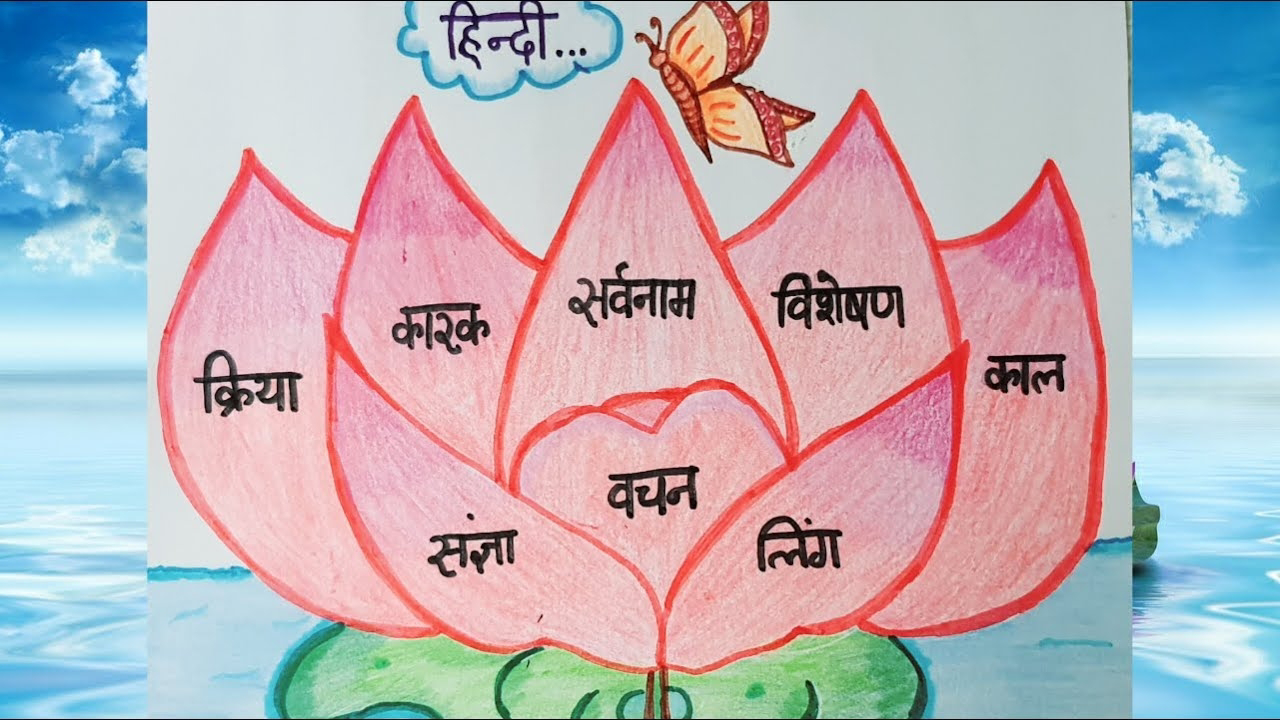 हिन्दी...
क्रिया
कारक
सर्वनाम
विशेषण
काल
संज्ञा
वचन
लिंग